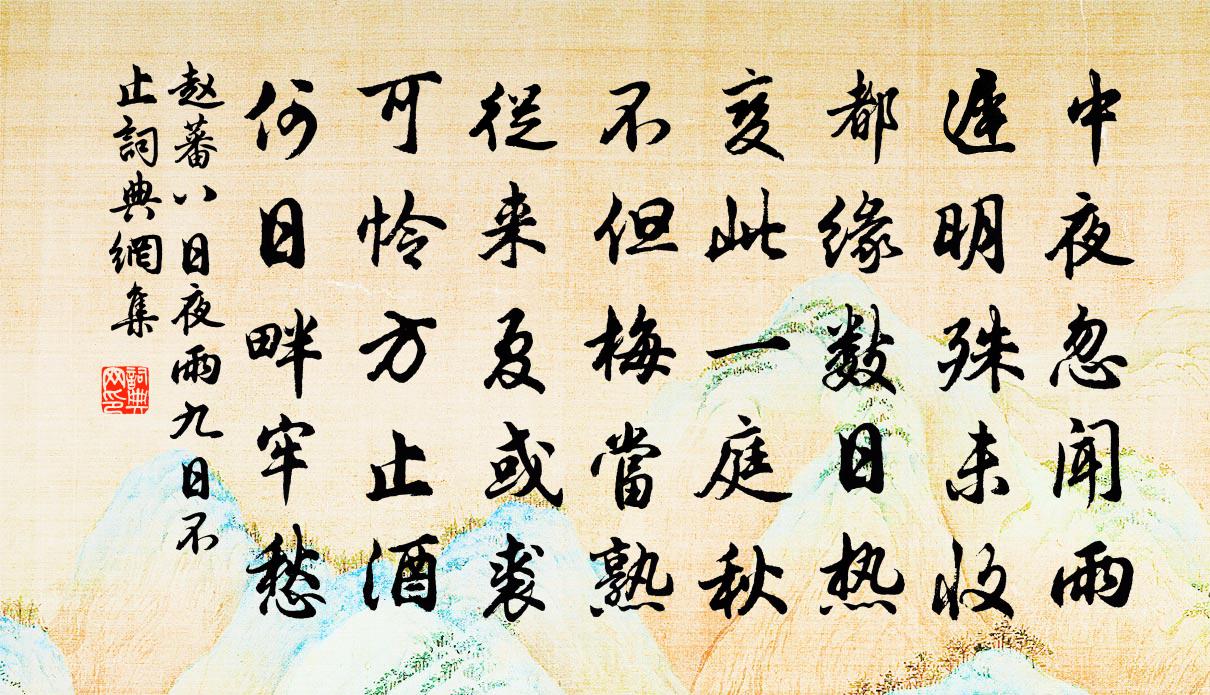 中夜忽闻雨
遲明殊未收
都緣数日热
变此一庭秋
不但梅當熟
從来夏或裘
可怜方止酒
何日畔牢愁
赵蕃八日夜雨九日不
止詞典網集
詞典网印